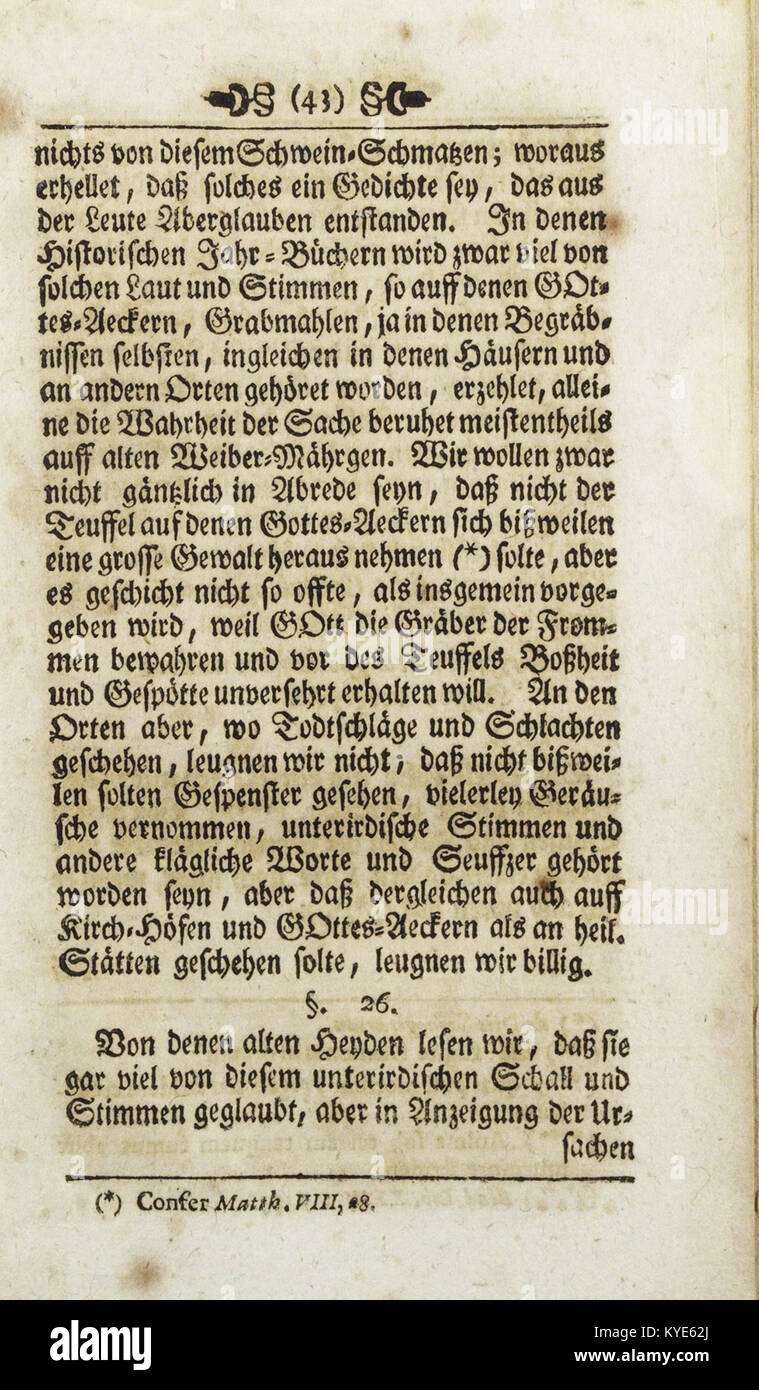 § (43) §
nichts von diesem Schwein-Schmatzen; woraus
erhellet, daß solches ein Gedichte sey, das aus
der Leute Aberglauben entstanden. In denen
Historischen Jahr-Büchern wird zwar viel von
solchen Laut und Stimmen, so auff denen GOt-
tes-Aeckern, Grabmahlen, ja in denen Begräb-
nissen selbsten, ingleichen in denen Häusern und
an andern Orten gehöret worden, erzehlet, allei-
ne die Wahrheit der Sache beruhet meistentheils
auff alten Weiber-Mährgen. Wir wollen zwar
nicht gäntzlich in Abrede seyn, daß nicht der
Teuffel auf denen Gottes-Aeckern sich bißweilen
eine grosse Gewalt heraus nehmen (*) solte, aber
es geschicht nicht so offte, als insgemein vorge-
geben wird, weil GOtt die Gräber der From-
men bewahren und vor des Teuffels Boßheit
und Gespötte unversehrt erhalten will. An den
Orten aber, wo Todtschläge und Schlachten
geschehen, leugnen wir nicht, daß nicht bißwei-
len solten Gespenster gesehen, vielerley Geräu-
sche vernommen, unterirdische Stimmen und
andere klägliche Worte und Seuffzer gehört
worden seyn, aber daß dergleichen auch auff
Kirch-Höfen und GOttes-Aeckern als an heil.
Stätten geschehen solte, leugnen wir billig.
§. 26.
Von denen alten Heyden lesen wir, daß sie
gar viel von diesem unterirdischen Schall und
Stimmen geglaubt, aber in Anzeigung der Ur-
sachen
(*) Confer Matth. VIII, 28.
alamy
alamy
alamy
alamy
Image ID: KYE62J
www.alamy.com